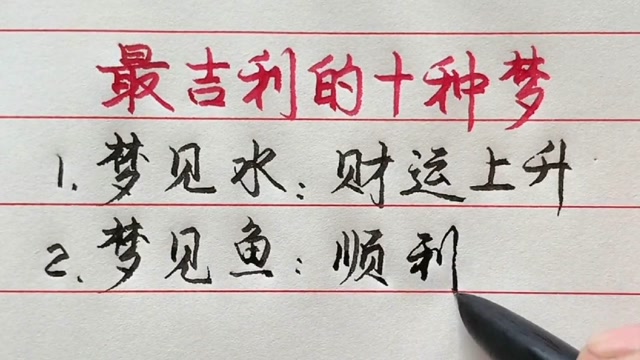 最吉利的十种梦
1.梦见水:财运上升
2.梦见鱼:顺利